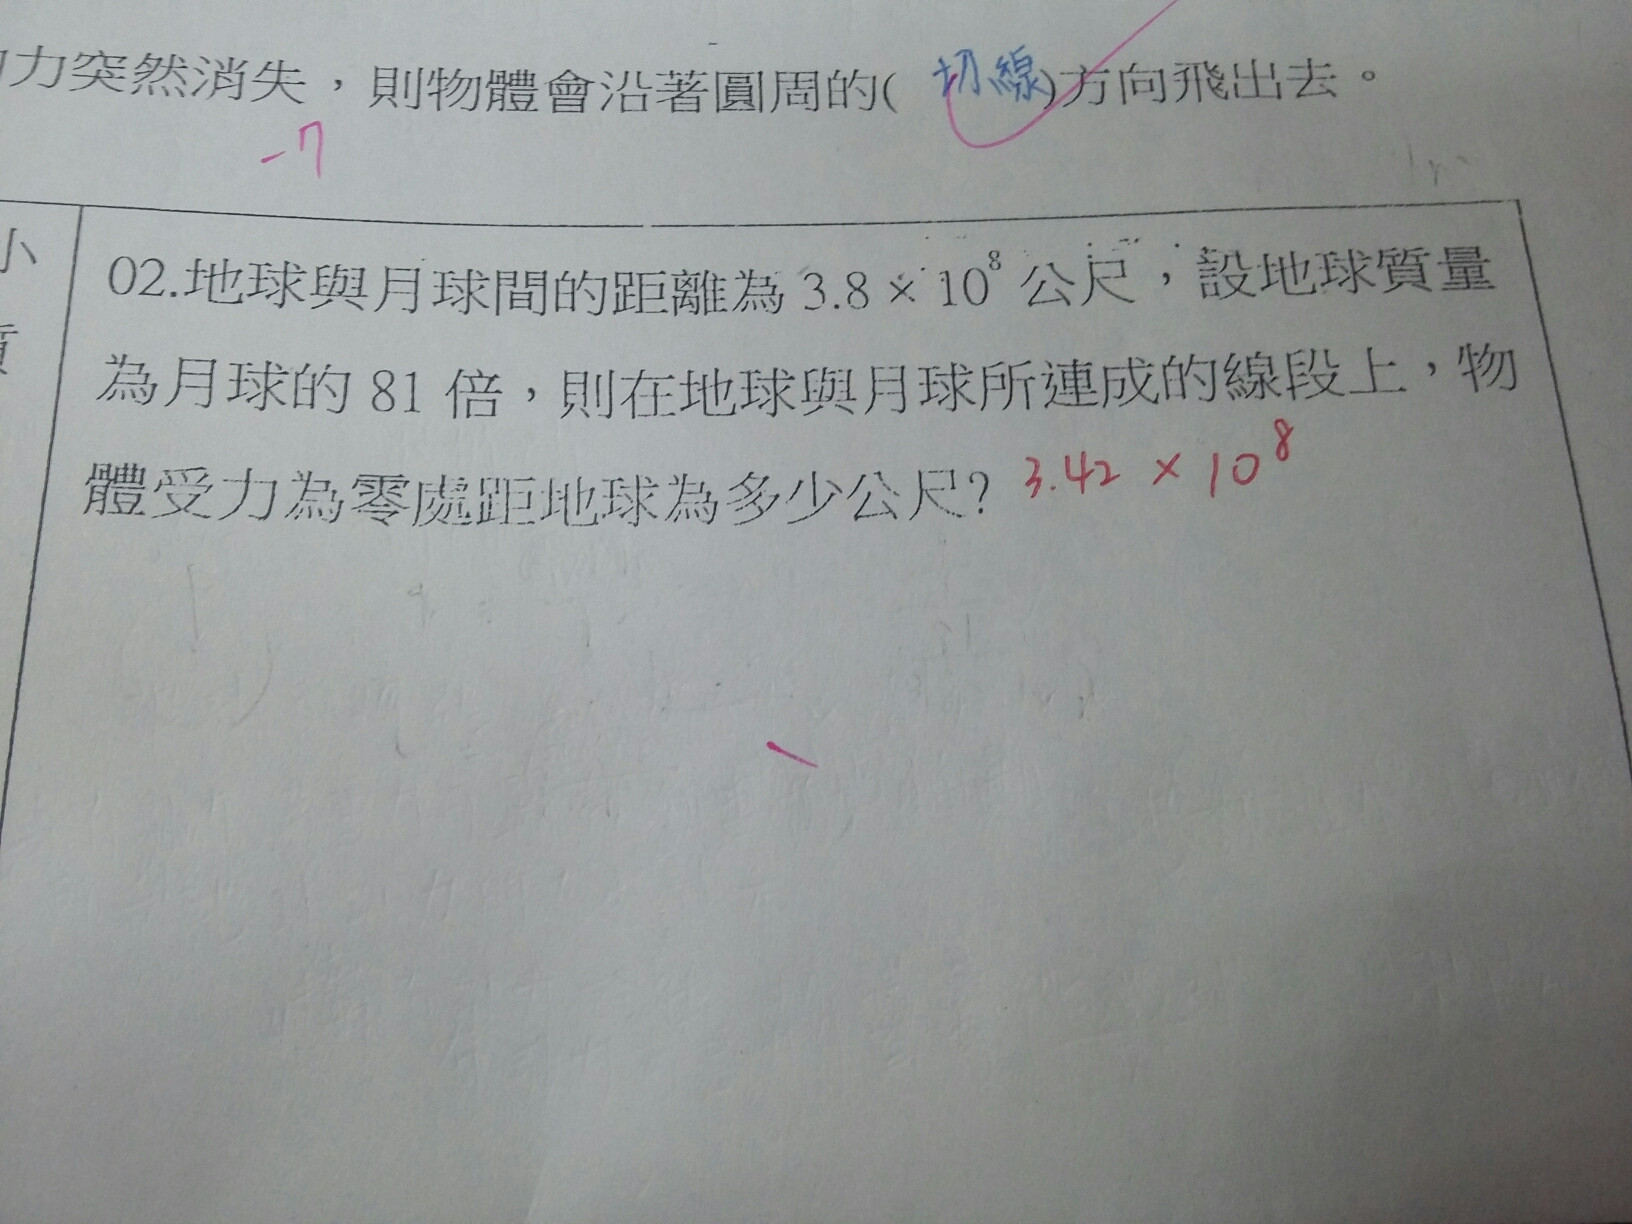 力突然消失，則物體會沿著圓周的( 切線)方向飛出去。
-7
小
02.地球與月球間的距離為 3.8 × 10⁸ 公尺，設地球質量
質
為月球的 81 倍，則在地球與月球所連成的線段上，物
體受力為零處距地球為多少公尺? 3.42 × 10⁸